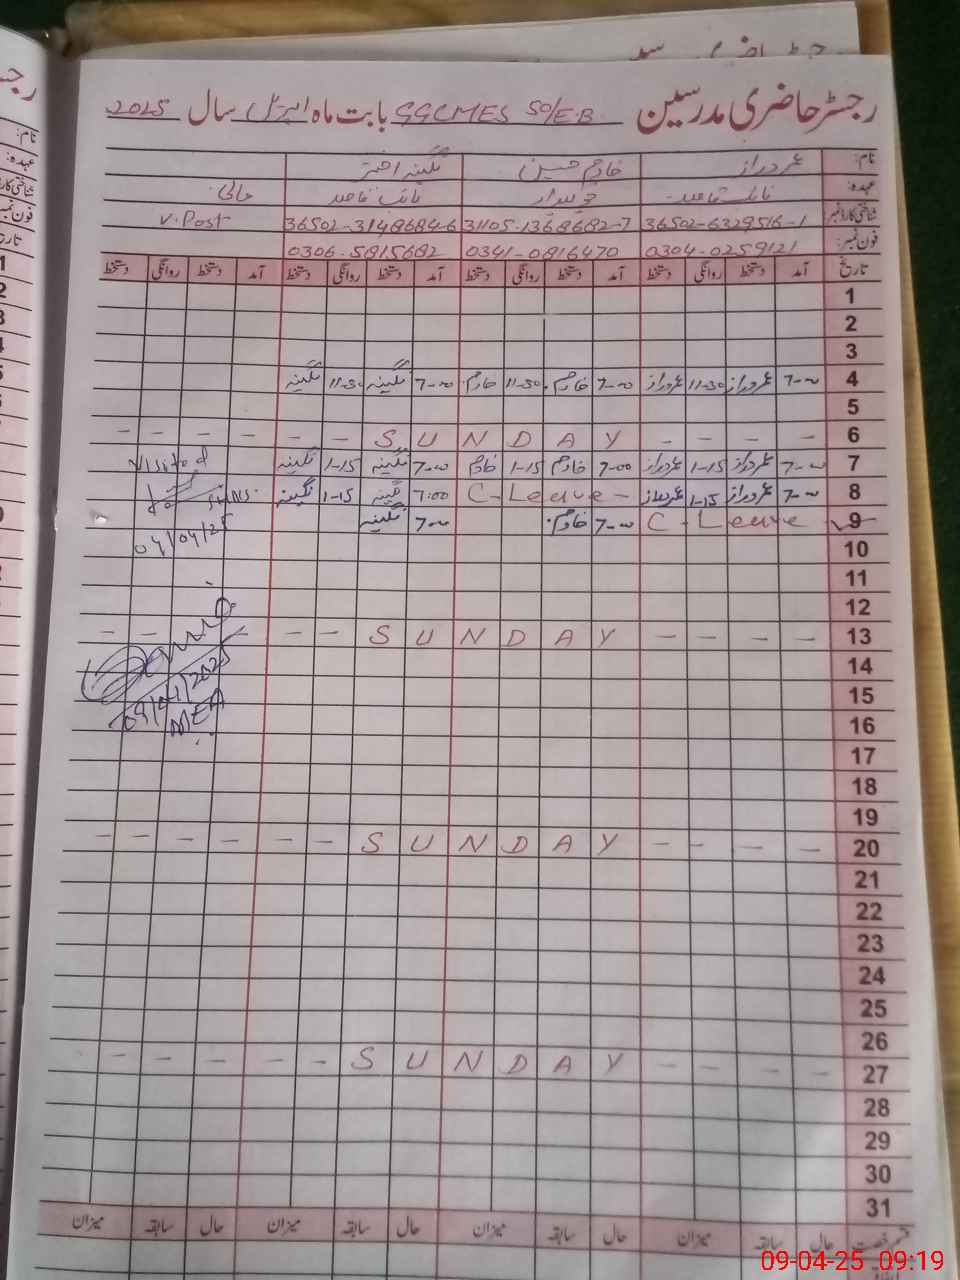 رجسٹر حاضری مدرسین GGCMES 50/E.B بابت ماہ اپریل سال 2025
نام: عمر دراز خادم حسین نگینہ اختر
عہدہ: نائب قاصد چوکیدار نائب قاصد خالی
شناختی کارڈ نمبر 36502-6329516-1 31105-1368682-7 36502-3148684-6 V. Post
فون نمبر: 0304-0259121 0341-0816470 0306-5815682
تاریخ آمد دستخط روانگی دستخط آمد دستخط روانگی دستخط آمد دستخط روانگی دستخط آمد دستخط روانگی دستخط
1
2
3
4 7-00 عمر دراز 11-30 عمر دراز 7-00 خادم 11-30 خادم 7-00 نگینہ 11-30 نگینہ
5
6 - - - - - - S U N D A Y - - - -
7 7-00 عمر دراز 1-15 عمر دراز 7-00 خادم 1-15 خادم 7-00 نگینہ 1-15 نگینہ
Visited
8 7-00 عمر دراز 1-15 عمر دراز C-Leave- 7:00 نگینہ 1-15 نگینہ
9 C-Leave 7-00 خادم 7-00 نگینہ
04/04/25
10
11
12
13 - - - - - S U N D A Y - - - -
14
15
09/04/2025
16
MEA
17
18
19
20 - - - - - - S U N D A Y - - - -
21
22
23
24
25
26
27 - - - - - - S U N D A Y - - - -
28
29
30
31
قسم رخصت حال سابقہ میزان حال سابقہ میزان حال سابقہ میزان حال سابقہ میزان
09-04-25 09:19